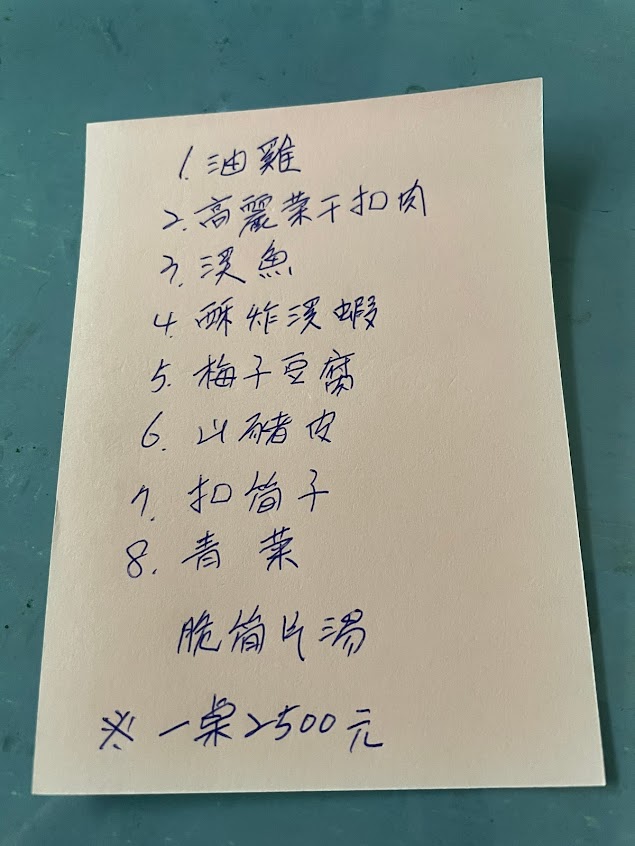 1. 油雞
2. 高麗菜干扣肉
3. 溪魚
4. 酥炸溪蝦
5. 梅子豆腐
6. 山豬皮
7. 扣筍子
8. 青菜
脆筍片湯
※ 一桌2500元